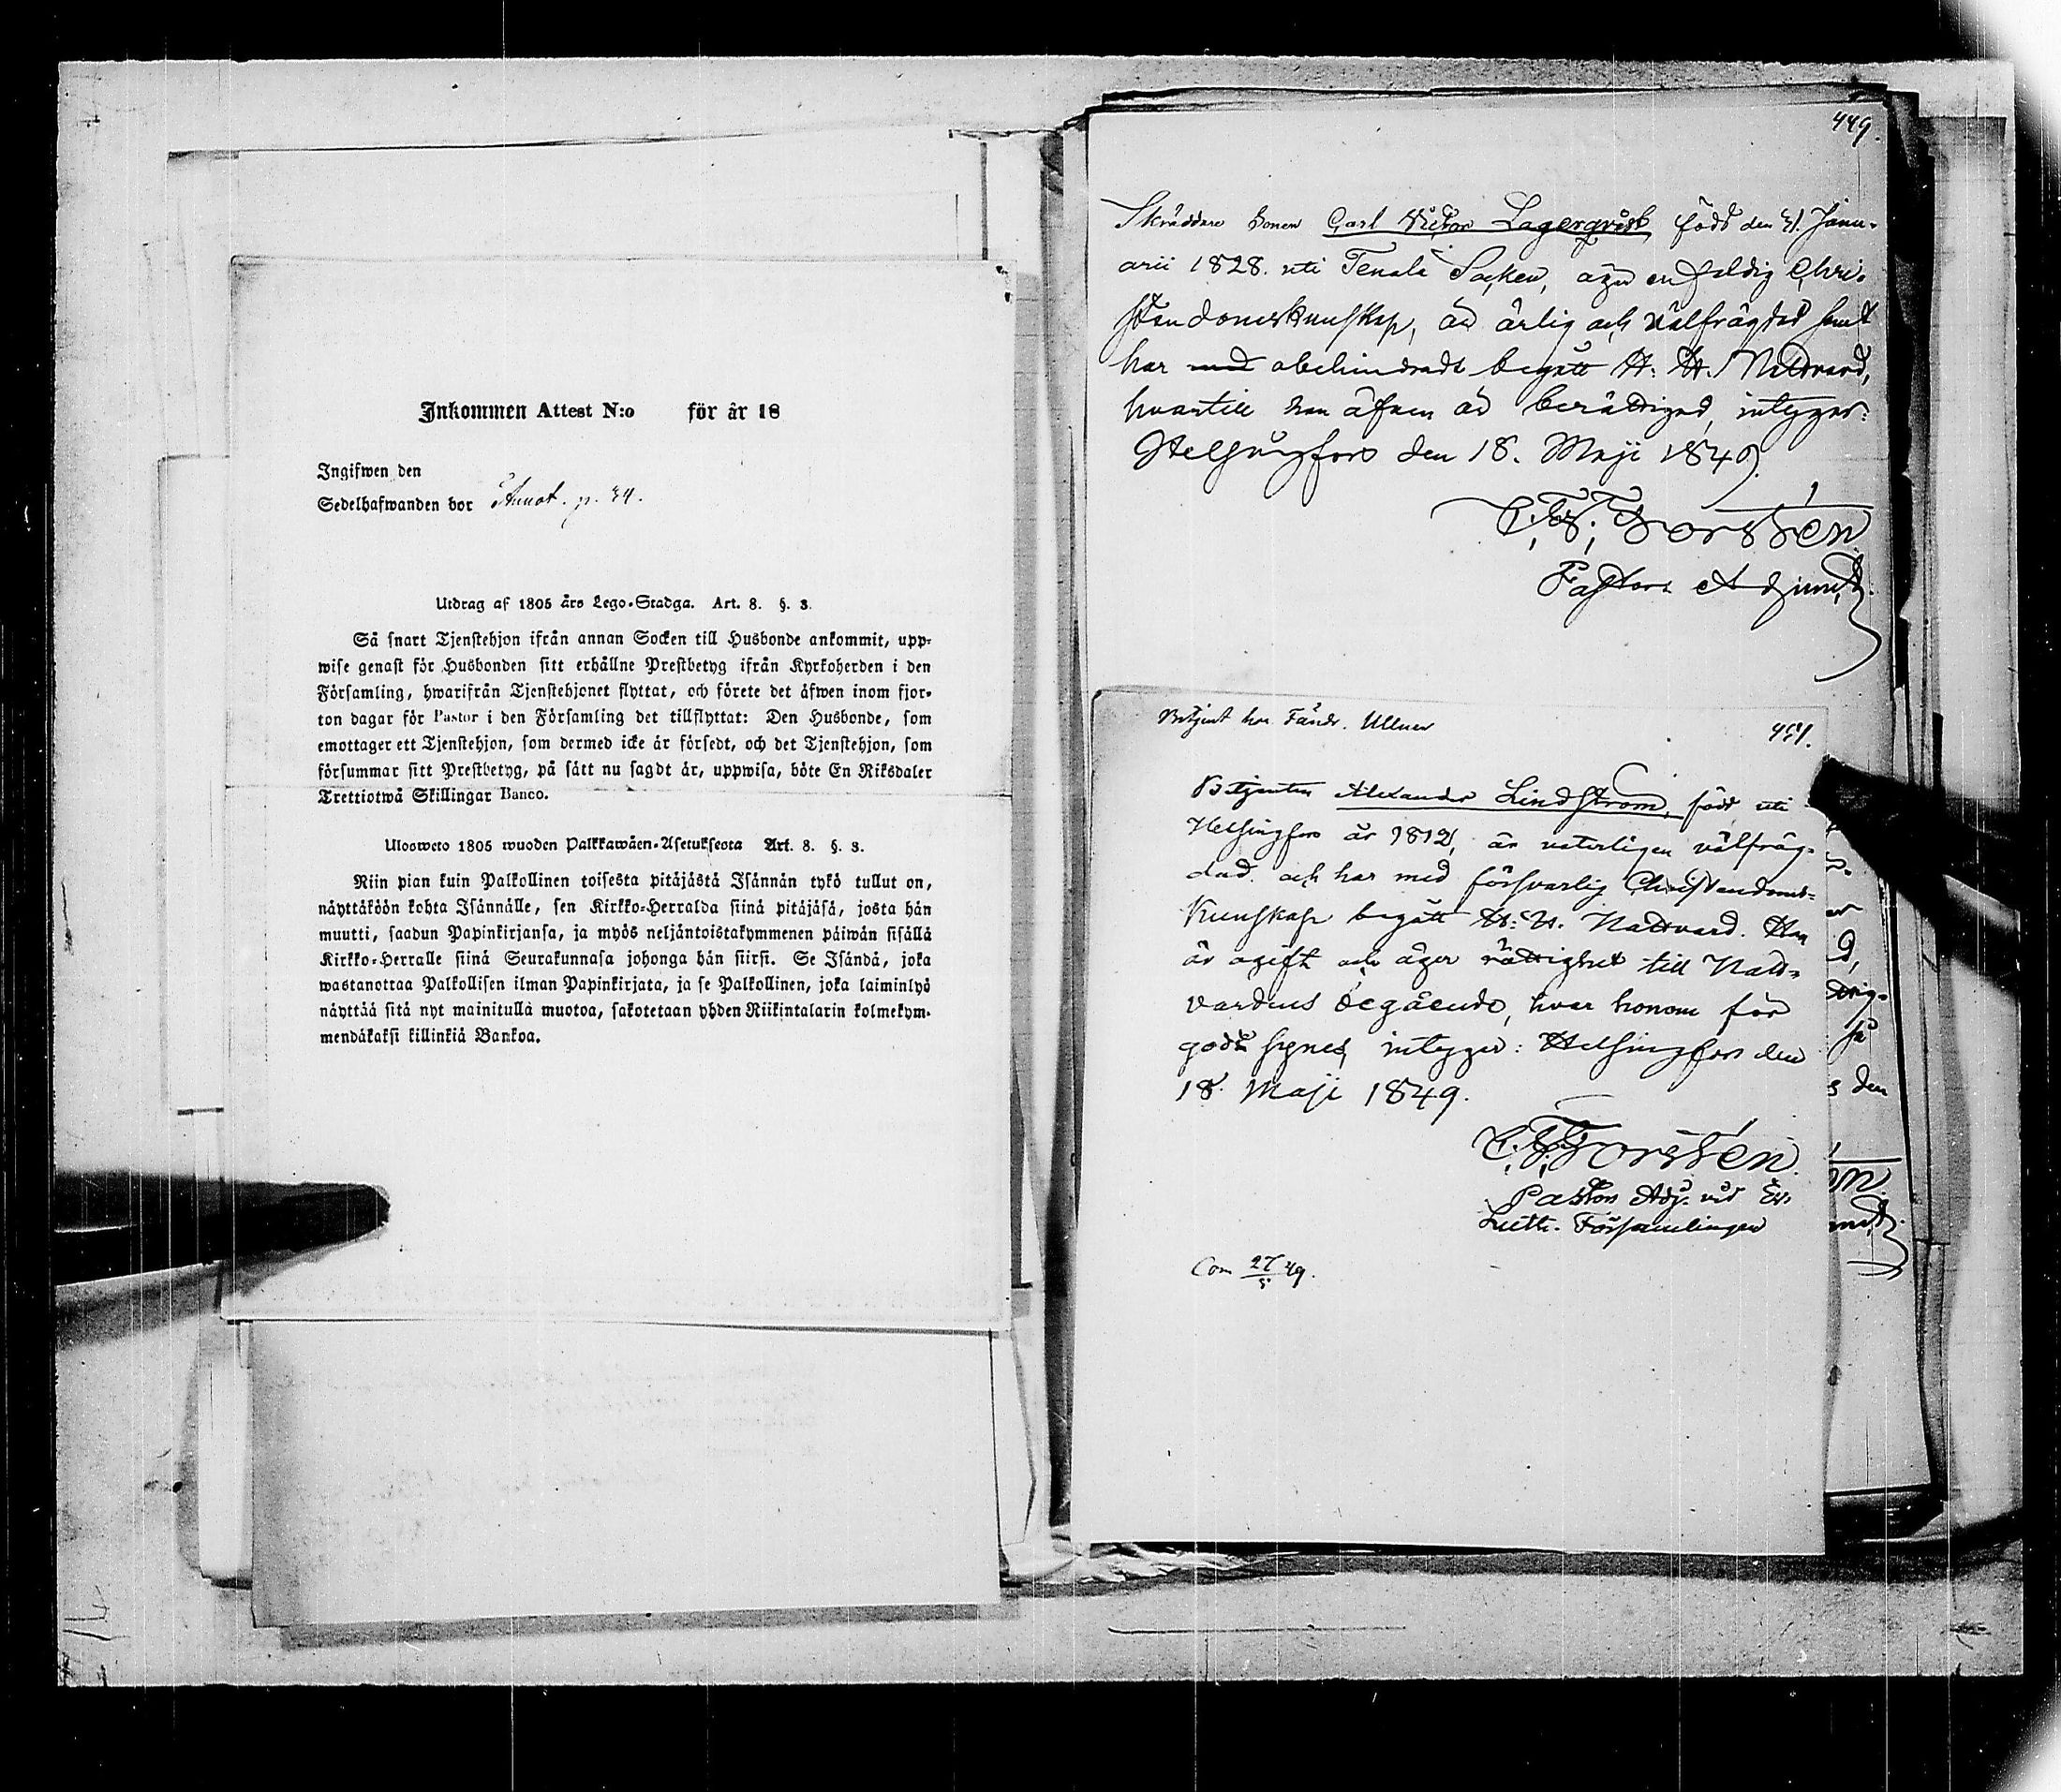 Inkommen Attest N:o för år 18
Ingifwen den
Sedelhafwanden bor Annot. p. 34.
Utdrag af 1805 års Lego-Stadga. Art. 8. §. 3.
Så snart Tjenstehjon ifrån annan Socken till Husbonde ankommit, upp-
wise genast för Husbonden sitt erhållne Prestbetyg ifrån Kyrkoherden i den
Församling, hwarifrån Tjenstehjonet flyttat, och förete det äfwen inom fjor-
ton dagar för Pastor i den Församling det tillflyttat: Den Husbonde, som
emottager ett Tjenstehjon, som dermed icke är försedt, och det Tjenstehjon, som
försummar sitt Prestbetyg, på sätt nu sagdt är, uppwisa, böte En Riksdaler
Trettiotwå Skillingar Banco.
Ulosweto 1805 wuoden Palkkawäen-Asetuksesta Art. 8. §. 3.
Niin pian kuin Palkollinen toisesta pitäjästä Isännän tykö tullut on,
näyttäköön kohta Isännälle, sen Kirkko-Herralda siinä pitäjäsä, josta hän
muutti, saadun Papinkirjansa, ja myös neljäntoistakymmenen päiwän sisällä
Kirkko-Herralle siinä Seurakunnasa johonga hän siirsi. Se Isändä, joka
wastanottaa Palkollisen ilman Papinkirjata, ja se Palkollinen, joka laiminlyö
näyttää sitä nyt mainitulla muotoa, sakotetaan yhden Riikintalarin kolmekym-
mendäkaksi killinkiä Bankoa.
449.
Skräddare Sonen Carl Victor Lagerqvist född den 31. Janu-
arii 1828. uti Tenala Socken, äger enfaldig Chri-
stendomskunskap, är ärlig och välfrägdad samt
har med obehindradt begått H. H. Nattvard,
hvartill han äfven är berättigad, intygar:
Helsingfors den 18. Maji 1849.
C. F. Forssén
Pastors Adjunct.
Betjent hos Fändr. Ullner
451.
Betjenten Alexander Lindström, född uti
Helsingfors år 1812, är veterligen välfräg-
dad. och har med försvarlig Christendoms-
Kunskap begått H. H. Nattvard. Han
är ogift och äger rättighet till Natt-
vardens begående, hvar honom för
godt synes, intygar: Helsingfors den
18. Maji 1849.
C. F. Forssén
Pastors Adj. vid Ev.
Luth. Församlingen
Com 27/5 49.
d,
så
s den